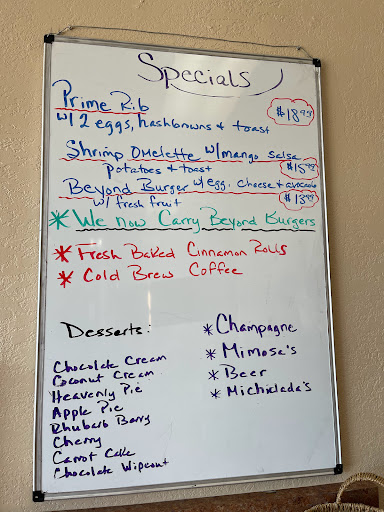 Specials
Prime Rib $18.99
w/ 2 eggs, hashbrowns & toast
Shrimp Omelette w/mango salsa
potatoes & toast $15.99
Beyond Burger w/egg, cheese & avocado
w/ fresh fruit $13.99
* We Now Carry Beyond Burgers
* Fresh Baked Cinnamon Rolls
* Cold Brew Coffee
Desserts:
Chocolate Cream
Coconut Cream
Heavenly Pie
Apple Pie
Rhubarb Berry
Cherry
Carrot Cake
Chocolate Wipeout
* Champagne
* Mimosa's
* Beer
* Michielada's